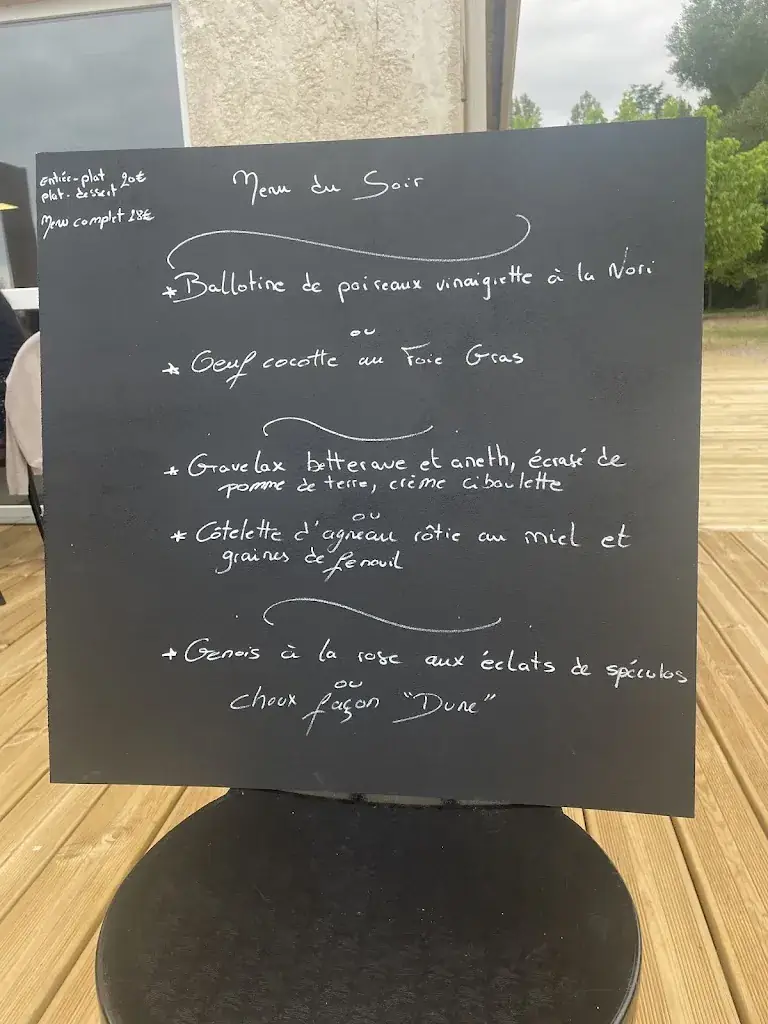 Entrée-plat 20€
plat-dessert
Menu complet 28€
Menu du Soir
*Ballotine de poireaux vinaigrette à la Nori
ou
* Oeuf cocotte au Foie Gras
* Gravelax betterave et aneth, écrasé de
pomme de terre, crème ciboulette
ou
* Côtelette d'agneau rôtie au miel et
graines de fenouil
* Genois à la rose aux éclats de spéculos
ou
choux façon "Dune"